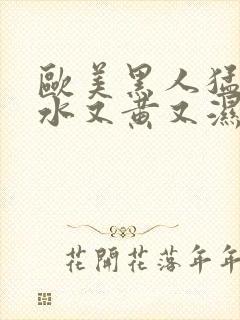 歐美黑人猛
水又黃又濕
花開花落年年